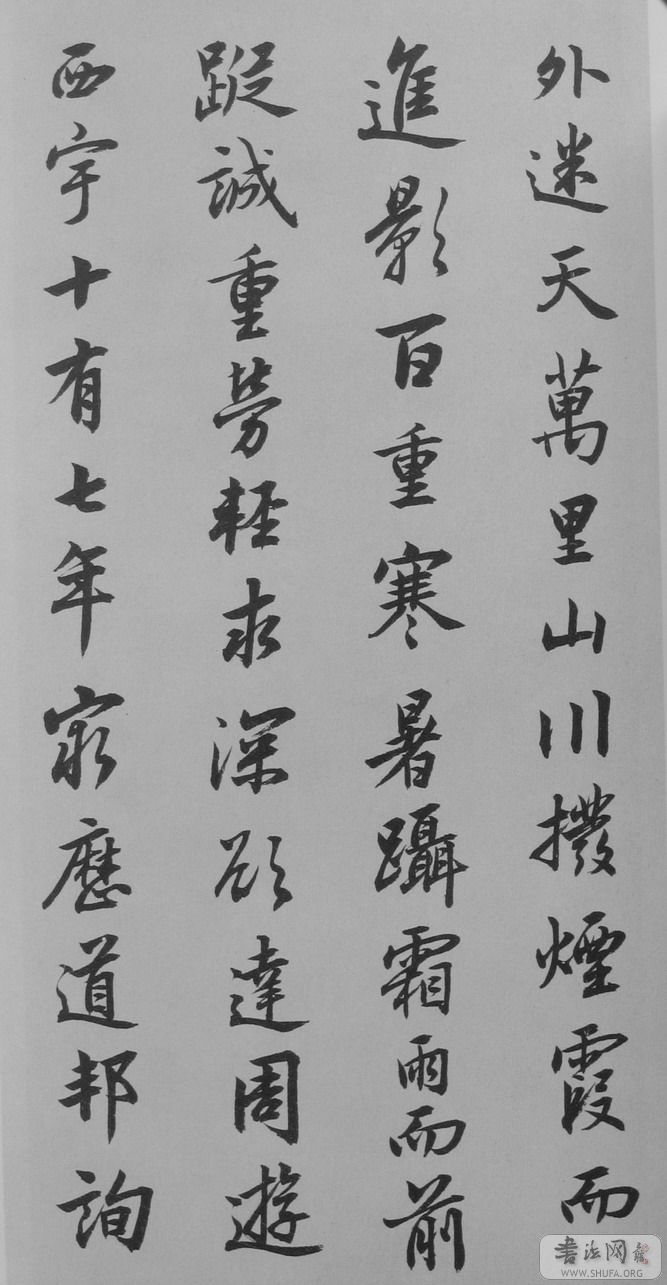 外迷天萬里山川撥煙霞而
進影百重寒暑躡霜雨而前
蹤誠重勞輕求深欲達周遊
西宇十有七年窮歷道邦詢
書法网
WWW.SHUFA.ORG